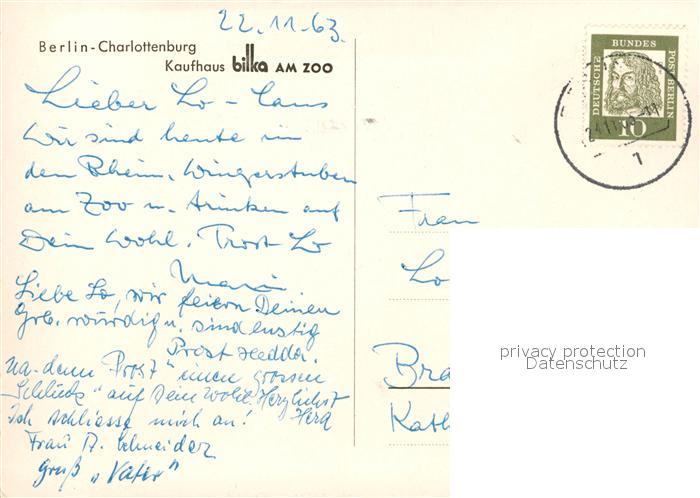 22.11.63.
Berlin-Charlottenburg
Kaufhaus bilka AM ZOO
Lieber Lo-
Wir sind heute in
den Rhein. Wingerstuben
am Zoo u. trinken auf
Dein Wohl. Prost Lo
Liebe Lo, wir feiern Deinen
Grb. würdig u. sind lustig
Prost Hedda.
na-denn "Prost" einen grossen
"Schluck" auf Dein Wohl. Herzlichst
Ich schliesse mich an! Herta
Frau A. Schneider
Gruß "Vater"
DEUTSCHE BUNDES POST BERLIN
10
1
Frau
Lo
Bra
Kath
privacy protection
Datenschutz